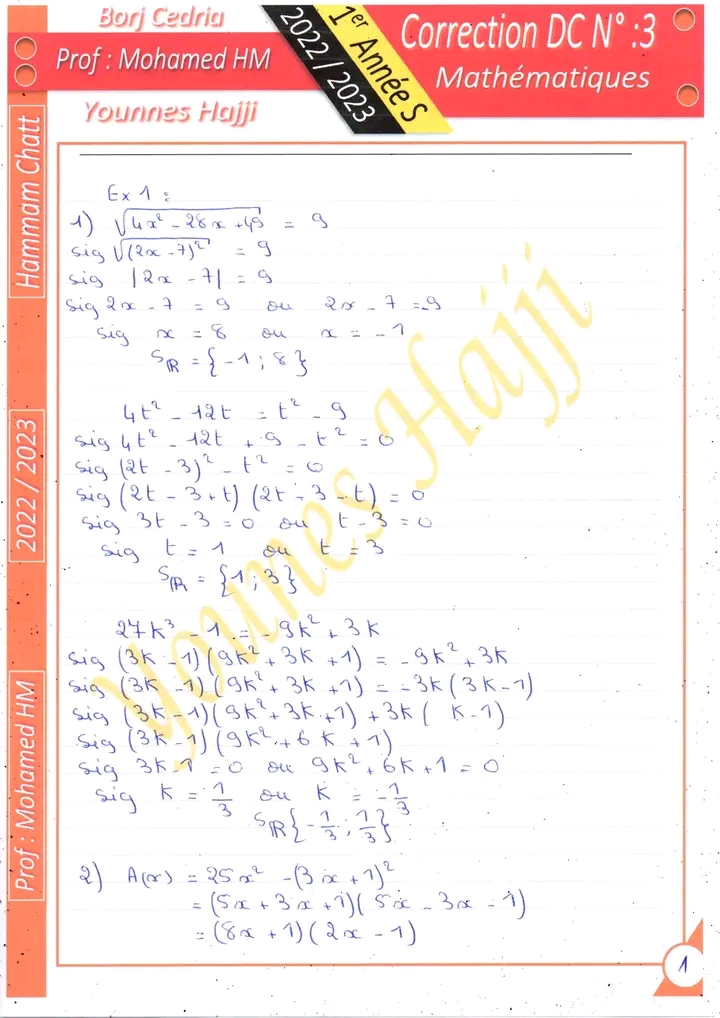 Borj Cedria
Prof : Mohamed HM
Younnes Hajji
2022 / 2023
1er Année S
Correction DC N° :3
Mathématiques
Hammam Chatt
2022 / 2023
Prof : Mohamed HM
Younes Hajji
Ex 1 :
1) √(4x² - 28x + 49) = 9
sig √((2x - 7)²) = 9
sig |2x - 7| = 9
sig 2x - 7 = 9 ou 2x - 7 = -9
sig x = 8 ou x = -1
Sℝ = {-1 ; 8}
4t² - 12t = t² - 9
sig 4t² - 12t + 9 - t² = 0
sig (2t - 3)² - t² = 0
sig (2t - 3 + t) (2t - 3 - t) = 0
sig 3t - 3 = 0 ou t - 3 = 0
sig t = 1 ou t = 3
Sℝ = {1 ; 3}
27k³ - 1 = -9k² + 3k
sig (3k - 1)(9k² + 3k + 1) = -9k² + 3k
sig (3k - 1)(9k² + 3k + 1) = -3k(3k - 1)
sig (3k - 1)(9k² + 3k + 1) + 3k( k - 1)
sig (3k - 1)(9k² + 6k + 1)
sig 3k - 1 = 0 ou 9k² + 6k + 1 = 0
sig k = 1/3 ou k = -1/3
Sℝ{-1/3 ; 1/3}
2) A(x) = 25x² - (3x + 1)²
= (5x + 3x + 1)(5x - 3x - 1)
= (8x + 1)(2x - 1)
1